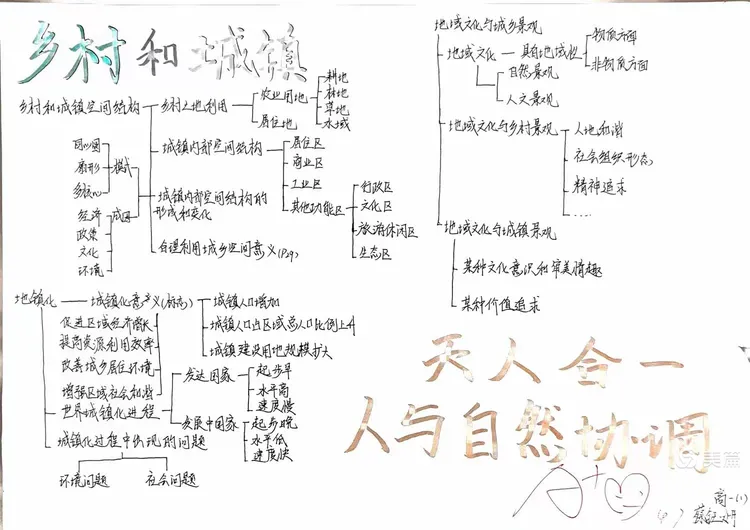 乡村和城镇
乡村和城镇空间结构
乡村土地利用
农业用地
耕地
林地
草地
水域
居住地
城镇内部空间结构
居住区
商业区
工业区
其他功能区
行政区
文化区
旅游休闲区
生态区
城镇内部空间结构的
形成和变化
模式
同心圆
扇形
多核心
成因
经济
政策
文化
环境
合理利用城乡空间意义(P29)
地镇化
城镇化意义(标志)
城镇人口增加
城镇人口占区域总人口比例上升
城镇建设用地规模扩大
促进区域经济增长
提高资源利用效率
改善城乡居住环境
增强区域社会和谐
世界城镇化进程
发达国家
起步早
水平高
速度慢
发展中国家
起步晚
水平低
速度快
城镇化过程中出现的问题
环境问题
社会问题
地域文化与城乡景观
地域文化
具有地域性
物质方面
非物质方面
自然景观
人文景观
地域文化与乡村景观
人地和谐
社会组织形态
精神追求
……
地域文化与城镇景观
某种文化意识和审美情趣
某种价值追求
天人合一
人与自然协调
A+
美篇
高一(1)